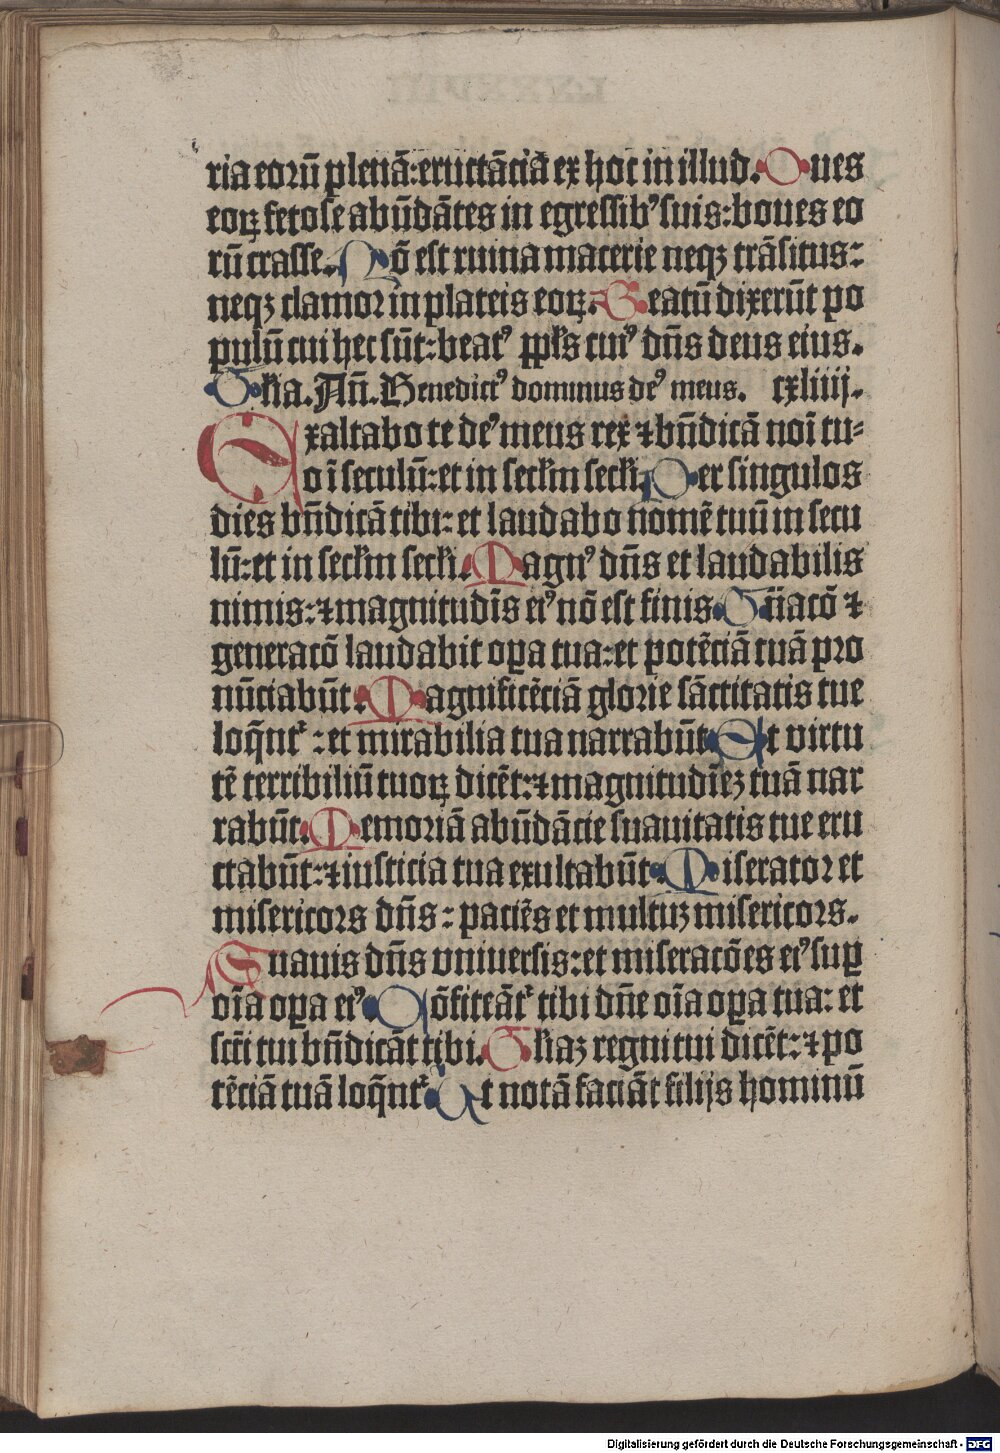 ria eorū plenā: eructācia ex hoc in illud. Oues
eoꝝ fetose abūdātes in egressibꝰ suis: boues eo
rū crasse. Nō est ruina macerie neqꝫ trāsitus:
neqꝫ clamor in plateis eoꝝ. Beatū dixerūt po
pulū cui hec sūt: beatꝰ ppłs cuiꝰ dn̄s deus eius.
Głia. An̄. Benedictꝰ dominus deꝰ meus. cxliiij.
Exaltabo te deꝰ meus rex ⁊ bn̄dicā noī tu-
o ī seculū: et in secłm secłi. Per singulos
dies bn̄dicā tibi: et laudabo nomē tuū in secu
lū: et in secłm secłi. Magnꝰ dn̄s et laudabilis
nimis: ⁊ magnitudīs eiꝰ nō est finis. Gn̄acō ⁊
generacō laudabit oꝑa tua: et potēciā tuā pro
nūciabūt. Magnificēciā glorie sāctitatis tue
loq̄nt᷑: et mirabilia tua narrabūt. Et virtu
tē terribiliū tuoꝝ dicēt: ⁊ magnitudīeꝫ tuā nar
rabūt. Memoriā abūdācie suauitatis tue eru
ctabūt: ⁊ iusticia tua exultabūt. Miserator et
misericors dn̄s: paciēs et multuꝫ misericors.
Suauis dn̄s vniuersis: et miseracōes eiꝰ suꝑ
oīa oꝑa eiꝰ. Cōfiteāt᷑ tibi dn̄e oīa oꝑa tua: et
scti tui bn̄dicāt tibi. Głiaꝫ regni tui dicēt: ⁊ po
tēciā tuā loqn̄t᷑. Ut notā faciāt filijs hominū
Digitalisierung gefördert durch die Deutsche Forschungsgemeinschaft - DFG